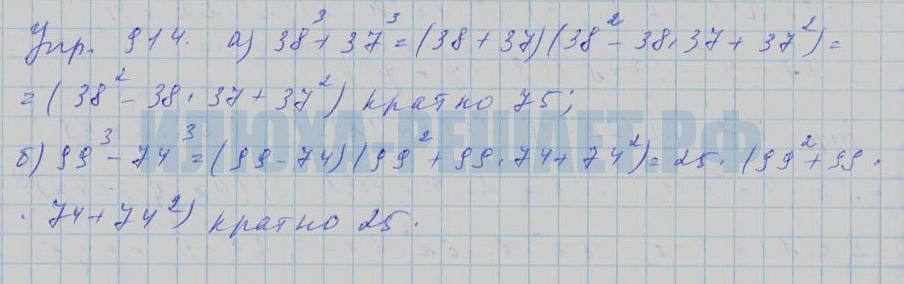 Упр. 914. а) 38³ + 37³ = (38 + 37)(38² - 38 · 37 + 37²) =
= (38² - 38 · 37 + 37²) кратно 75;
ИЛЮХА-РЕШАЕТ.РФ
б) 99³ - 74³ = (99 - 74)(99² + 99 · 74 + 74²) = 25 · (99² + 99 ·
· 74 + 74²) кратно 25.